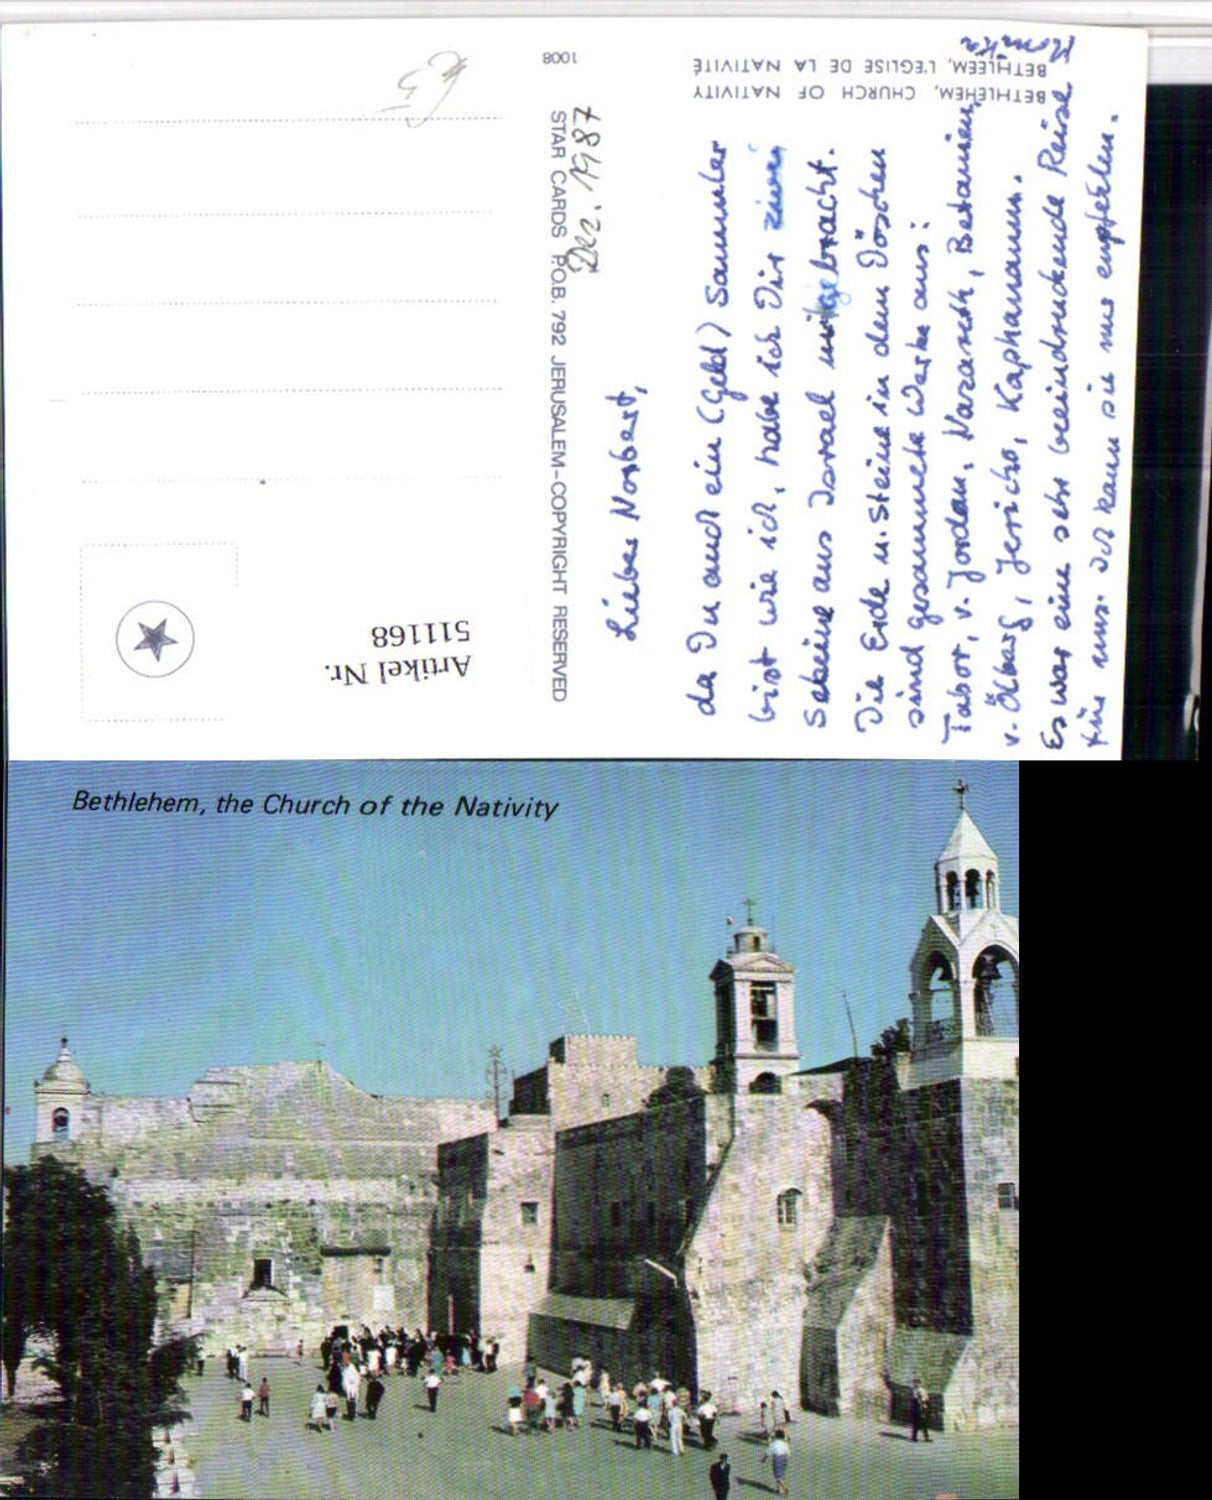 BETHLEHEM, CHURCH OF NATIVITY
BETHLEEM, L'EGLISE DE LA NATIVITÉ
1008
STAR CARDS P.O.B. 792 JERUSALEM–COPYRIGHT RESERVED
Artikel Nr.
511168
Dez. 1987
Lieber Norbert,
da Du auch ein (Geld) Sammler
bist wie ich, habe ich Dir zwei
Scheine aus Israel mitgebracht.
Die Erde u. Steine in dem Döschen
sind gesammelte Werke aus:
Tabor, v. Jordan, Nazareth, Betanien,
v. Ölberg, Jericho, Kapharnaum.
Es war eine sehr beeindruckende Reise
für uns. Ich kann sie nur empfehlen.
Monika
Bethlehem, the Church of the Nativity